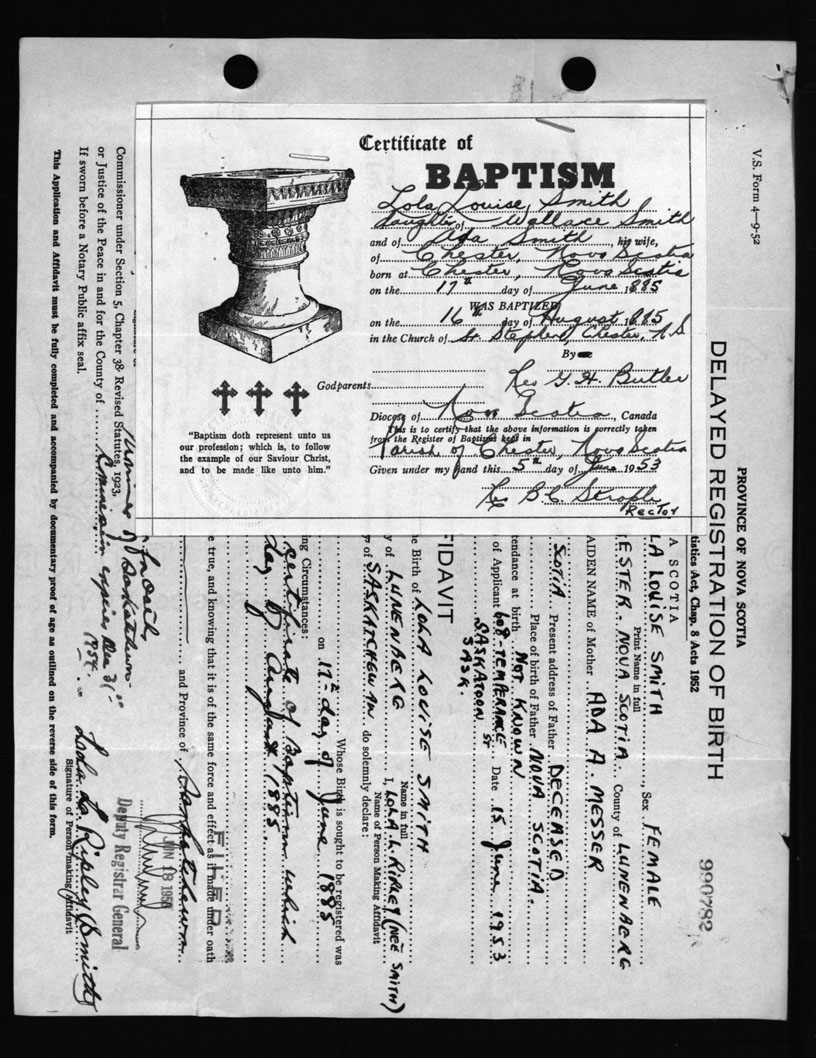 Certificate of
BAPTISM
Lola Louise Smith
daughter of Wallace Smith
and of Ada Smith, his wife,
of Chester, Nova Scotia
born at Chester, Nova Scotia
on the 17th day of June 1885
WAS BAPTIZED
on the 16th day of August 1885
in the Church of St Stephen, Chester, N.S
By
Rev G. H. Butler
Godparents
Diocese of Nova Scotia, Canada
This is to certify that the above information is correctly taken
from the Register of Baptisms kept in
Parish of Chester, Nova Scotia
Given under my hand this 5th day of June 1953
Rev B. C.
Rector
"Baptism doth represent unto us
our profession; which is, to follow
the example of our Saviour Christ,
and to be made like unto him."
V.S. Form 4—9-52
PROVINCE OF NOVA SCOTIA
DELAYED REGISTRATION OF BIRTH
990782
tistics Act, Chap. 8 Acts 1952
A SCOTIA
LA LOUISE SMITH, Sex FEMALE
Print Name in full
ESTER. NOVA SCOTIA. County of LUNENBERG
AIDEN NAME of Mother ADA A. MESSER
SCOTIA Present address of Father DECEASED
Place of birth of Father NOVA SCOTIA.
tendance at birth NOT KNOWN
of Applicant 608-TEMPERANCE ST Date 15 June 1953
SASKATOON
SASK.
FIDAVIT
e Birth of LOLA LOUISE SMITH
Name in full
y of LUNENBERG I, LOLA L. RIPLEY (NEE SMITH)
Name of Person Making Affidavit
of SASKATCHEWAN do solemnly declare:
Whose Birth is sought to be registered was
on 17th day of June 1885
ng Circumstances:
certificate of Baptism which
day of August 1885.
e true, and knowing that it is of the same force and effect as if made under oath
FILED
JUN 18 195
Deputy Registrar General
and Province of Saskatchewan
Lola L. Ripley (Smith)
Signature of Person making Affidavit
Commissioner under Section 5, Chapter 38 Revised Statutes, 1923,
or Justice of the Peace in and for the County of
of Saskatchewan
expires Dec 31
1954.
If sworn before a Notary Public affix seal.
This Application and Affidavit must be fully completed and accompanied by documentary proof of age as outlined on the reverse side of this form.